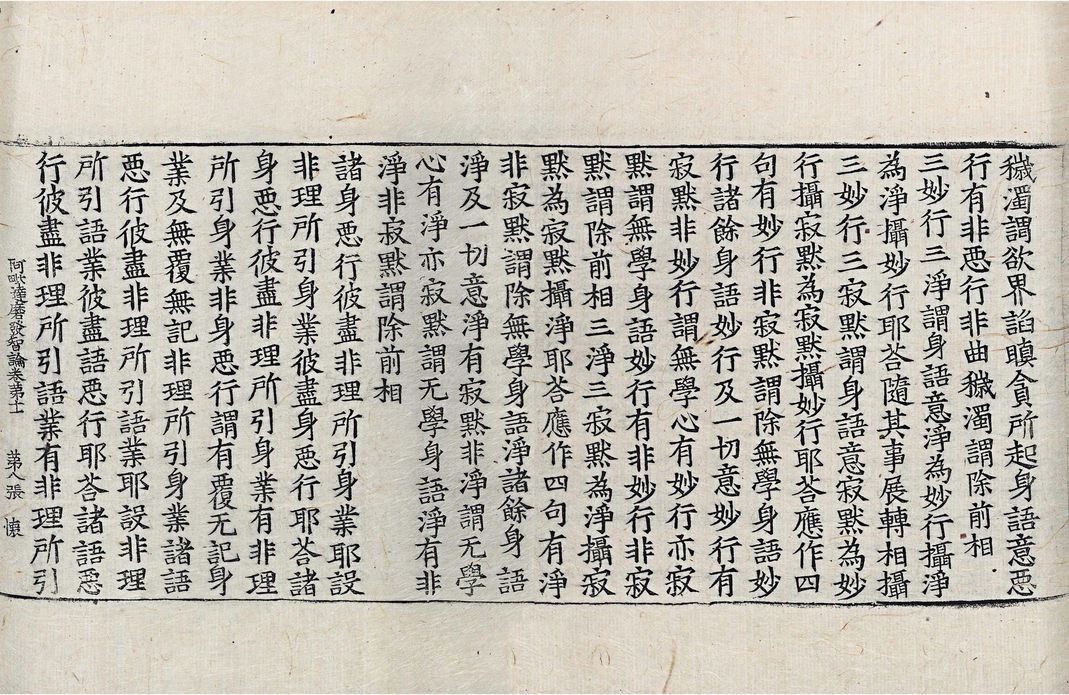 穢濁謂欲界諂瞋貪所起身語意惡
行有非惡行非曲穢濁謂除前相
三妙行三淨謂身語意淨為妙行攝淨
為淨攝妙行耶荅隨其事展轉相攝
三妙行三寂默謂身語意寂默為妙
行攝寂默為寂默攝妙行耶荅應作四
句有妙行非寂默謂除無學身語妙
行諸餘身語妙行及一切意妙行有
寂默非妙行謂無學心有妙行亦寂
默謂無學身語妙行有非妙行非寂
默謂除前相三淨三寂默為淨攝寂
默為寂默攝淨耶荅應作四句有淨
非寂默謂除無學身語淨諸餘身語
淨及一切意淨有寂默非淨謂无學
心有淨亦寂默謂无學身語淨有非
淨非寂默謂除前相
諸身惡行彼盡非理所引身業耶設
非理所引身業彼盡身惡行耶荅諸
身惡行彼盡非理所引身業有非理
所引身業非身惡行謂有覆无記身
業及無覆無記非理所引身業諸語
惡行彼盡非理所引語業耶設非理
所引語業彼盡語惡行耶荅諸語惡
行彼盡非理所引語業有非理所引
阿毗達磨發智論卷第十一 第八張 懷